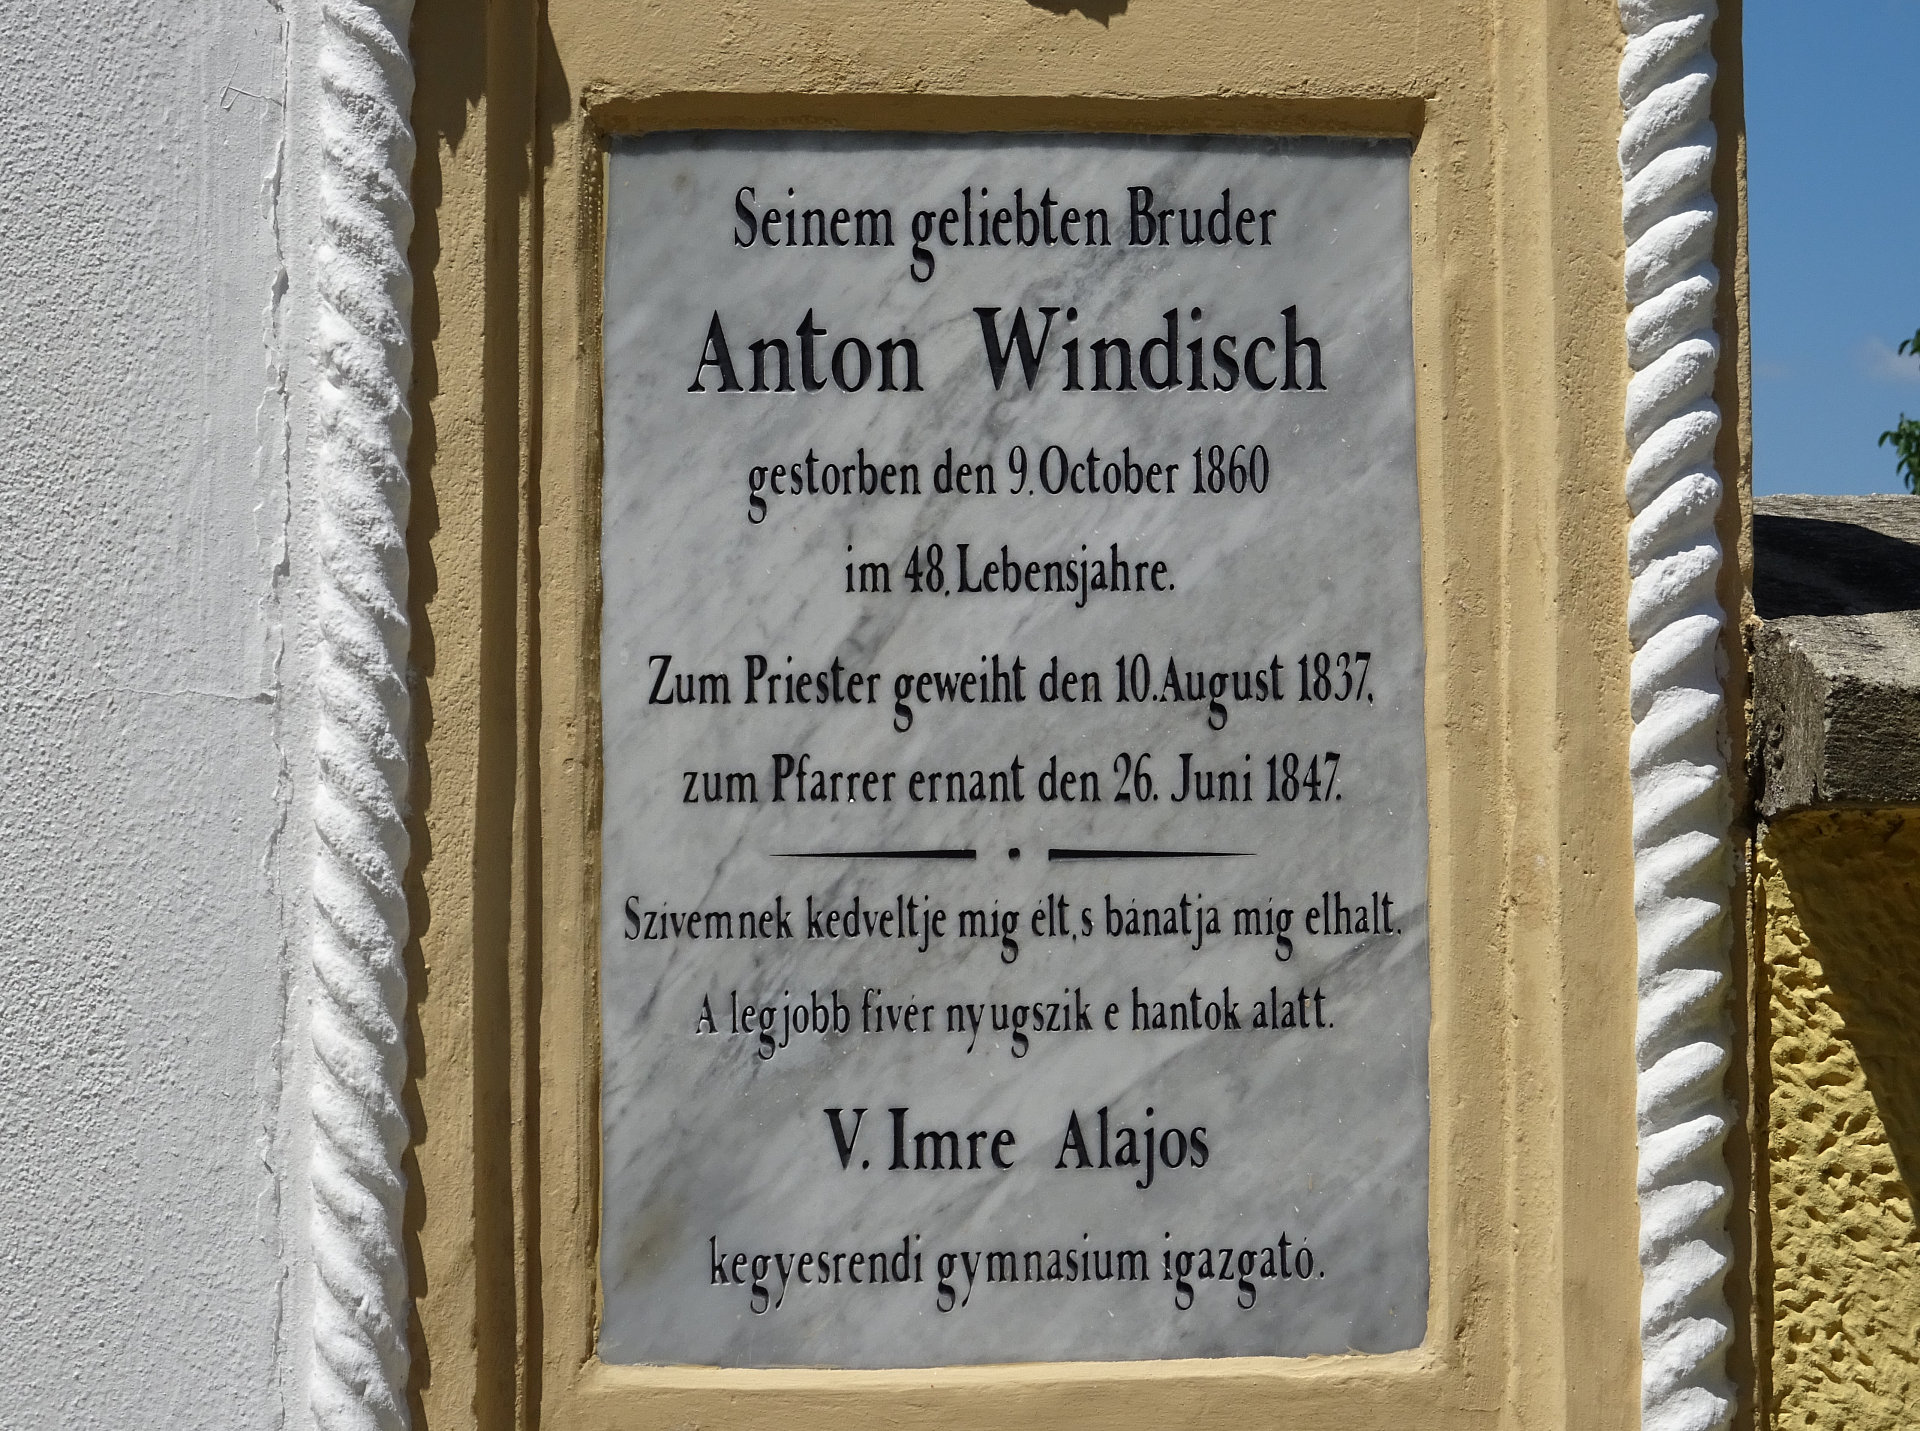 Seinem geliebten Bruder
Anton Windisch
gestorben den 9. October 1860
im 48. Lebensjahre.
Zum Priester geweiht den 10. August 1837,
zum Pfarrer ernant den 26. Juni 1847.
Szívemnek kedveltje míg élt, s bánatja míg elhalt.
A legjobb fivér nyugszik e hantok alatt.
V. Imre Alajos
kegyesrendi gymnasium igazgató.